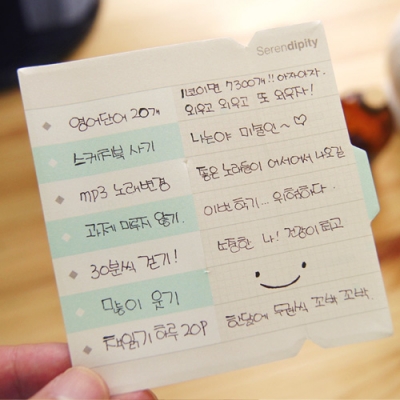 Serendipity
영어단어 20개
1년이면 7300개!! 아자아자.
외우고 외우고 또 외우자!
스케치북 사기
나는야 미술인~♡
mp3 노래변경
좋은 노래들이 어서어서 나오길
과제 미루지 않기.
이번 학기... 위험하다.
30분씩 걷기!
소중한 나! 건강이 최고
많이 웃기
책읽기 하루 20P
한달에 두권씩 꼬박 꼬박